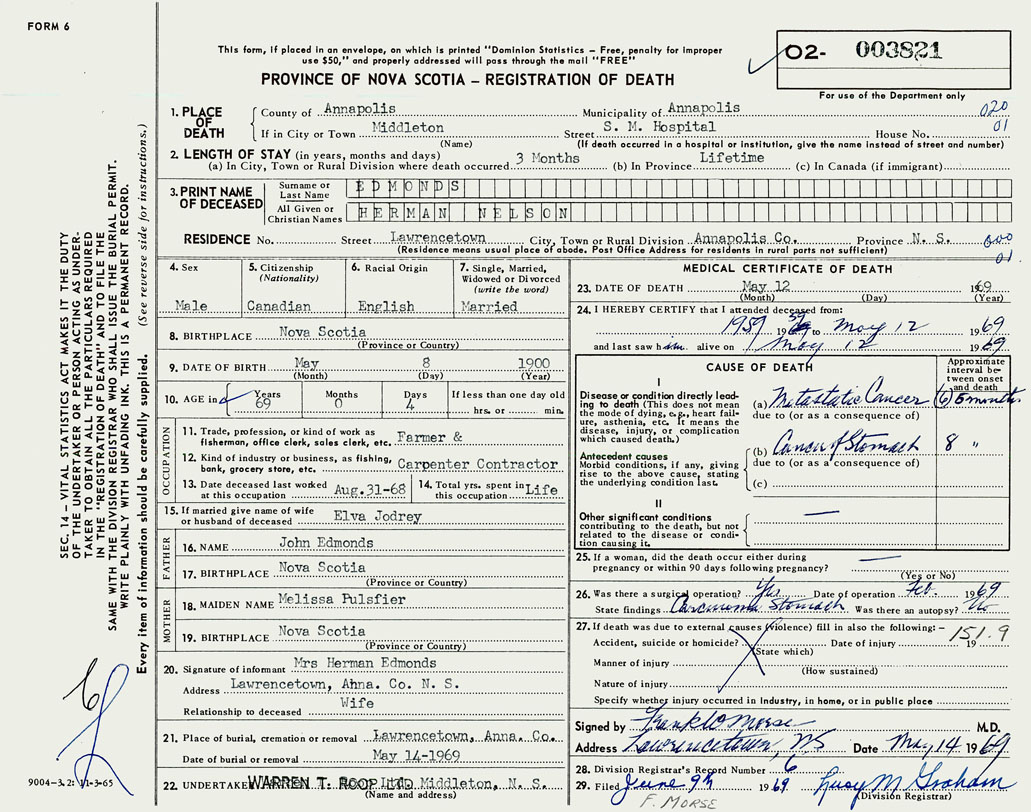 FORM 6
This form, if placed in an envelope, on which is printed "Dominion Statistics – Free, penalty for improper
use $50," and properly addressed will pass through the mail "FREE"
PROVINCE OF NOVA SCOTIA – REGISTRATION OF DEATH
O2- 003821
For use of the Department only
1. PLACE OF DEATH
County of Annapolis Municipality of Annapolis 020
If in City or Town Middleton Street S. M. Hospital House No. 01
(Name) (If death occurred in a hospital or institution, give the name instead of street and number)
2. LENGTH OF STAY (in years, months and days)
(a) In City, Town or Rural Division where death occurred 3 Months (b) In Province Lifetime (c) In Canada (if immigrant)
3. PRINT NAME OF DECEASED
Surname or Last Name EDMONDS
All Given or Christian Names HERMAN NELSON
RESIDENCE No. Street Lawrencetown City, Town or Rural Division Annapolis Co. Province N. S.
(Residence means usual place of abode. Post Office Address for residents in rural parts not sufficient)
01
SEC. 14 – VITAL STATISTICS ACT MAKES IT THE DUTY
OF THE UNDERTAKER OR PERSON ACTING AS UNDER-
TAKER TO OBTAIN ALL THE PARTICULARS REQUIRED
IN THE "REGISTRATION OF DEATH" AND TO FILE THE
SAME WITH THE DIVISION REGISTRAR WHO SHALL ISSUE THE BURIAL PERMIT.
WRITE PLAINLY WITH UNFADING INK. THIS IS A PERMANENT RECORD.
Every item of information should be carefully supplied. (See reverse side for instructions.)
4. Sex
Male
5. Citizenship
(Nationality)
Canadian
6. Racial Origin
English
7. Single, Married,
Widowed or Divorced
(write the word)
Married
8. BIRTHPLACE Nova Scotia
(Province or Country)
9. DATE OF BIRTH May 8 1900
(Month) (Day) (Year)
10. AGE in Years Months Days If less than one day old
69 0 4 hrs. or min.
OCCUPATION
11. Trade, profession, or kind of work as
fisherman, office clerk, sales clerk, etc. Farmer &
12. Kind of industry or business, as fishing,
bank, grocery store, etc. Carpenter Contractor
13. Date deceased last worked
at this occupation Aug.31-68
14. Total yrs. spent in
this occupation Life
15. If married give name of wife
or husband of deceased Elva Jodrey
FATHER
16. NAME John Edmonds
17. BIRTHPLACE Nova Scotia
(Province or Country)
MOTHER
18. MAIDEN NAME Melissa Pulsfier
19. BIRTHPLACE Nova Scotia
(Province or Country)
20. Signature of informant Mrs Herman Edmonds
Address Lawrencetown, Ahna. Co. N. S.
Relationship to deceased Wife
21. Place of burial, cremation or removal Lawrencetown, Anna. Co.
Date of burial or removal May 14-1969
22. UNDERTAKER WARREN T. ROOP LTD. Middleton, N. S.
(Name and address)
9004-3.2: 11-3-65
MEDICAL CERTIFICATE OF DEATH
23. DATE OF DEATH May 12 1969
(Month) (Day) (Year)
24. I HEREBY CERTIFY that I attended deceased from:
1959 19 59 to May 12 1969
and last saw him alive on May 12 1969
CAUSE OF DEATH
Approximate
interval be-
tween onset
and death
I
Disease or condition directly lead-
ing to death (This does not mean
the mode of dying, e.g., heart fail-
ure, asthenia, etc. It means the
disease, injury, or complication
which caused death.)
(a) Metastatic Cancer (6) 5 months
due to (or as a consequence of)
Antecedent causes
Morbid conditions, if any, giving
rise to the above cause, stating
the underlying condition last.
(b) Cancer of Stomach 8 "
due to (or as a consequence of)
(c)
II
Other significant conditions
contributing to the death, but not
related to the disease or condi-
tion causing it.
25. If a woman, did the death occur either during
pregnancy or within 90 days following pregnancy?
(Yes or No)
26. Was there a surgical operation? Yes Date of operation Feb. 1969
State findings Carcinoma Stomach Was there an autopsy? No
27. If death was due to external causes (violence) fill in also the following: – 151.9
Accident, suicide or homicide? Date of injury 19
(State which)
Manner of injury
(How sustained)
Nature of injury
Specify whether injury occurred in industry, in home, or in public place
Signed by Frank W Morse M.D.
Address Lawrencetown, NS Date May 14 1969
28. Division Registrar's Record Number 6
29. Filed June 9th 1969 Lucy M Graham
(Division Registrar)
F. MORSE